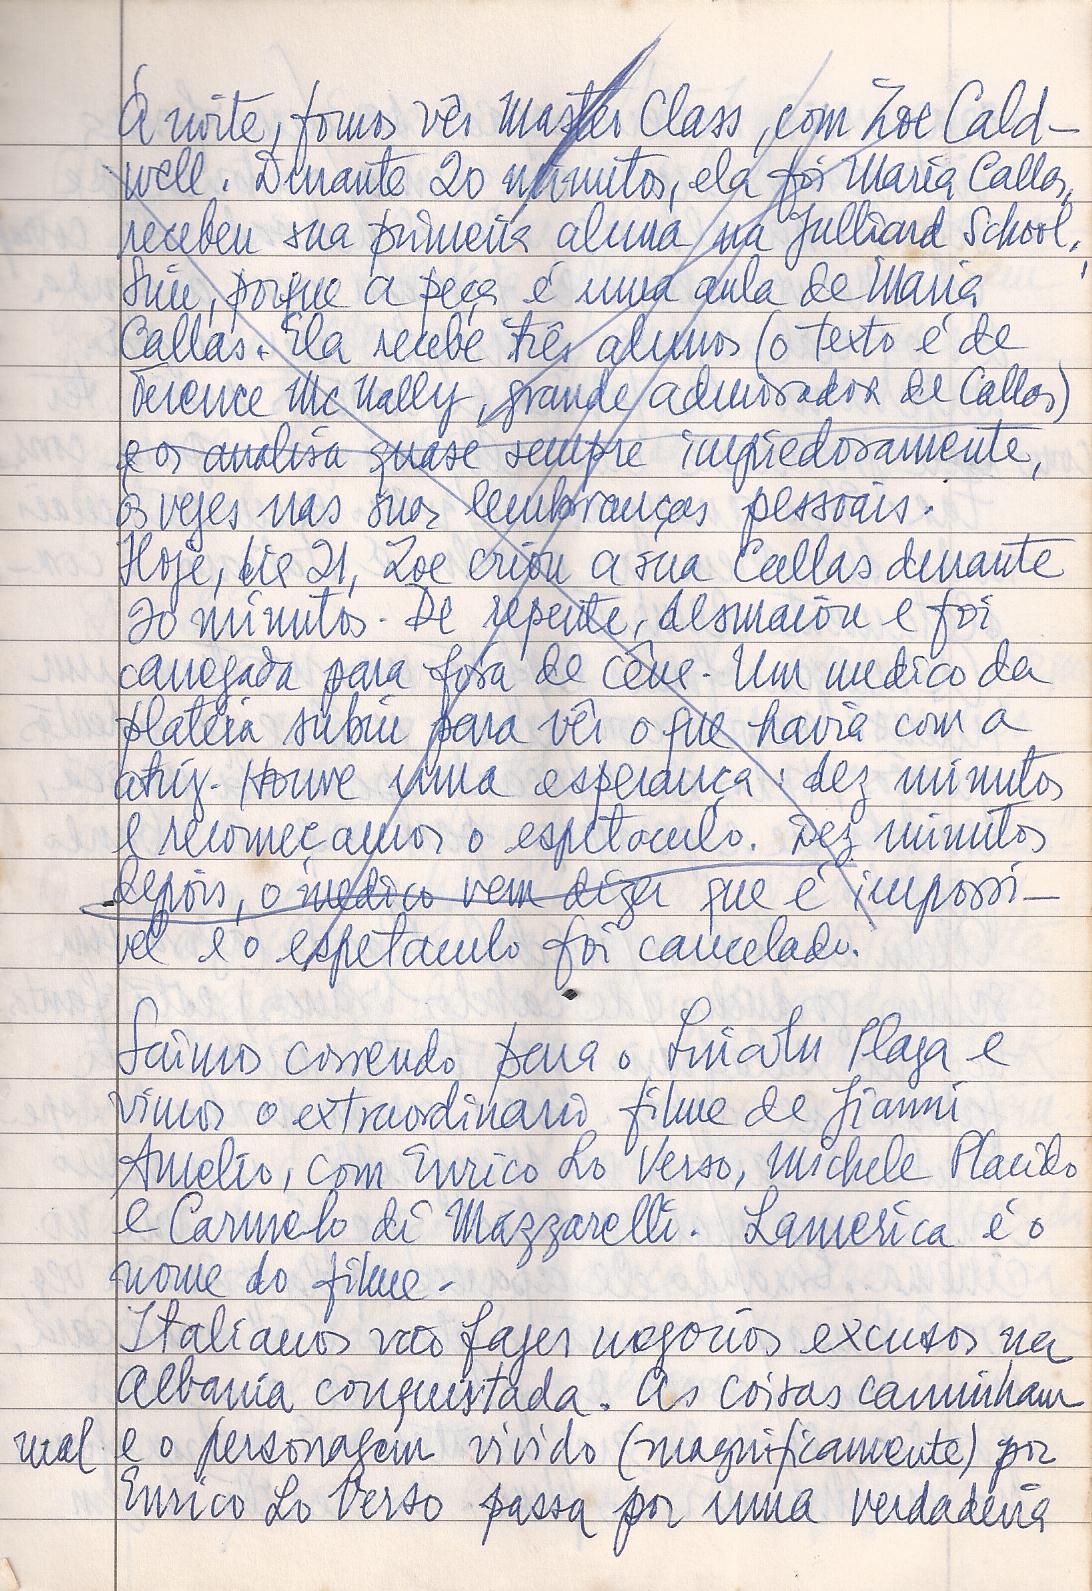 À noite, fomos vêr Master Class, com Zoe Cald-
well. Durante 20 minutos, ela foi Maria Callas,
recebeu sua primeira aluna na Julliard School.
Sim, porque a peça é uma aula de Maria
Callas. Ela recebe três alunos (o texto é de
Terence McNally, grande admirador de Callas)
e os analisa quase sempre impiedosamente,
às vezes nas suas lembranças pessoais.
Hoje, dia 21, Zoe criou a sua Callas durante
20 minutos. De repente, desmaiou e foi
carregada para fora de cêna. Um medico da
plateia subiu para vêr o que havia com a
atriz. Houve uma esperança: dez minutos
e recomeçamos o espetaculo. Dez minutos
depois, o medico vem dizer que é impossi-
vel e o espetaculo foi cancelado.
Saimos correndo para o Lincoln Plaza e
vimos o extraordinario filme de Gianni
Amelio, com Enrico Lo Verso, Michele Placido
e Carmelo di Mazzarelli. Lamerica é o
nome do filme.
Italianos vão fazer negocios excusos na
Albania conquistada. As coisas caminham
mal e o personagem vivido (magnificamente) por
Enrico Lo Verso passa por uma verdadeira